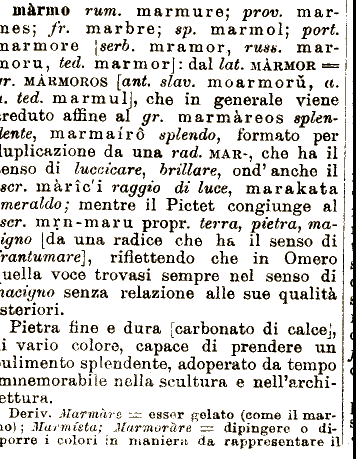 màrmo rum. marmure; prov. mar-
nes; fr. marbre; sp. marmol; port.
marmore [serb. mramor, russ. mar-
moru, ted. marmor]: dal lat. MÀRMOR =
gr. MÀRMOROS [ant. slav. moarmorŭ, a.
a. ted. marmul], che in generale viene
creduto affine al gr. marmàreos splen-
dente, marmaírô splendo, formato per
duplicazione da una rad. MAR-, che ha il
senso di luccicare, brillare, ond' anche il
scr. màrîc'i raggio di luce, marakata
smeraldo; mentre il Pictet congiunge al
scr. mṛn-maru propr. terra, pietra, ma-
cigno [da una radice che ha il senso di
frantumare], riflettendo che in Omero
quella voce trovasi sempre nel senso di
macigno senza relazione alle sue qualità
esteriori.
Pietra fine e dura [carbonato di calce],
di vario colore, capace di prendere un
pulimento splendente, adoperato da tempo
immemorabile nella scultura e nell'archi-
tettura.
Deriv. Marmàre = esser gelato (come il mar-
mo); Marmísta; Marmoràre = dipingere o di-
sporre i colori in maniera da rappresentare il